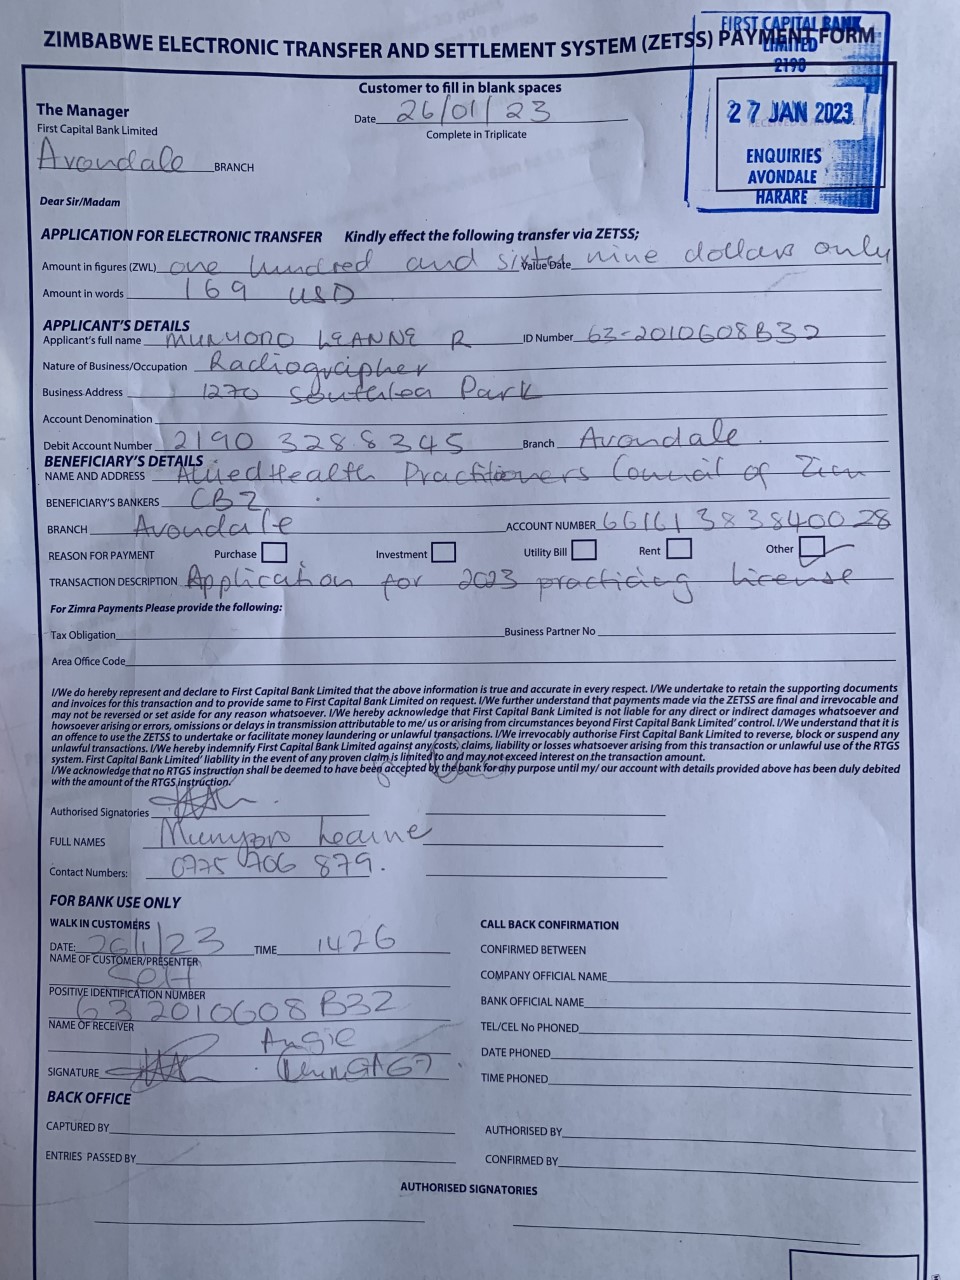 ZIMBABWE ELECTRONIC TRANSFER AND SETTLEMENT SYSTEM (ZETSS) PAYMENT FORM
FIRST CAPITAL BANK
LIMITED
2190
27 JAN 2023
ENQUIRIES
AVONDALE
HARARE
Customer to fill in blank spaces
The Manager
Date 26/01/23
First Capital Bank Limited
Complete in Triplicate
Avondale BRANCH
Dear Sir/Madam
APPLICATION FOR ELECTRONIC TRANSFER Kindly effect the following transfer via ZETSS;
Amount in figures (ZWL) one hundred and sixty Value Date nine dollars only
Amount in words 169 USD
APPLICANT'S DETAILS
Applicant's full name MUNYORO LEANNE R ID Number 63-2010608B32
Nature of Business/Occupation Radiographer
Business Address 1270 Southlea Park
Account Denomination
Debit Account Number 2190 3288345 Branch Avondale
BENEFICIARY'S DETAILS
NAME AND ADDRESS Allied Health Practitioners Council of Zim
BENEFICIARY'S BANKERS CBZ
BRANCH Avondale ACCOUNT NUMBER 66161383840028
REASON FOR PAYMENT Purchase Investment Utility Bill Rent Other
TRANSACTION DESCRIPTION Application for 2023 practicing license
For Zimra Payments Please provide the following:
Tax Obligation Business Partner No
Area Office Code
I/We do hereby represent and declare to First Capital Bank Limited that the above information is true and accurate in every respect. I/We undertake to retain the supporting documents
and invoices for this transaction and to provide same to First Capital Bank Limited on request. I/We further understand that payments made via the ZETSS are final and irrevocable and
may not be reversed or set aside for any reason whatsoever. I/We hereby acknowledge that First Capital Bank Limited is not liable for any direct or indirect damages whatsoever and
howsoever arising or errors, omissions or delays in transmission attributable to me/us or arising from circumstances beyond First Capital Bank Limited' control. I/We understand that it is
an offence to use the ZETSS to undertake or facilitate money laundering or unlawful transactions. I/We irrevocably authorise First Capital Bank Limited to reverse, block or suspend any
unlawful transactions. I/We hereby indemnify First Capital Bank Limited against any costs, claims, liability or losses whatsoever arising from this transaction or unlawful use of the RTGS
system. First Capital Bank Limited' liability in the event of any proven claim is limited to and may not exceed interest on the transaction amount.
I/We acknowledge that no RTGS instruction shall be deemed to have been accepted by the bank for any purpose until my/ our account with details provided above has been duly debited
with the amount of the RTGS instruction.
Authorised Signatories
FULL NAMES Munyoro Leanne
Contact Numbers: 0775 706 879.
FOR BANK USE ONLY
WALK IN CUSTOMERS CALL BACK CONFIRMATION
DATE: 26/1/23 TIME 1426 CONFIRMED BETWEEN
NAME OF CUSTOMER/PRESENTER
Self COMPANY OFFICIAL NAME
POSITIVE IDENTIFICATION NUMBER BANK OFFICIAL NAME
63 2010608 B32
NAME OF RECEIVER TEL/CEL No PHONED
Angie DATE PHONED
SIGNATURE TIME PHONED
BACK OFFICE
CAPTURED BY AUTHORISED BY
ENTRIES PASSED BY CONFIRMED BY
AUTHORISED SIGNATORIES